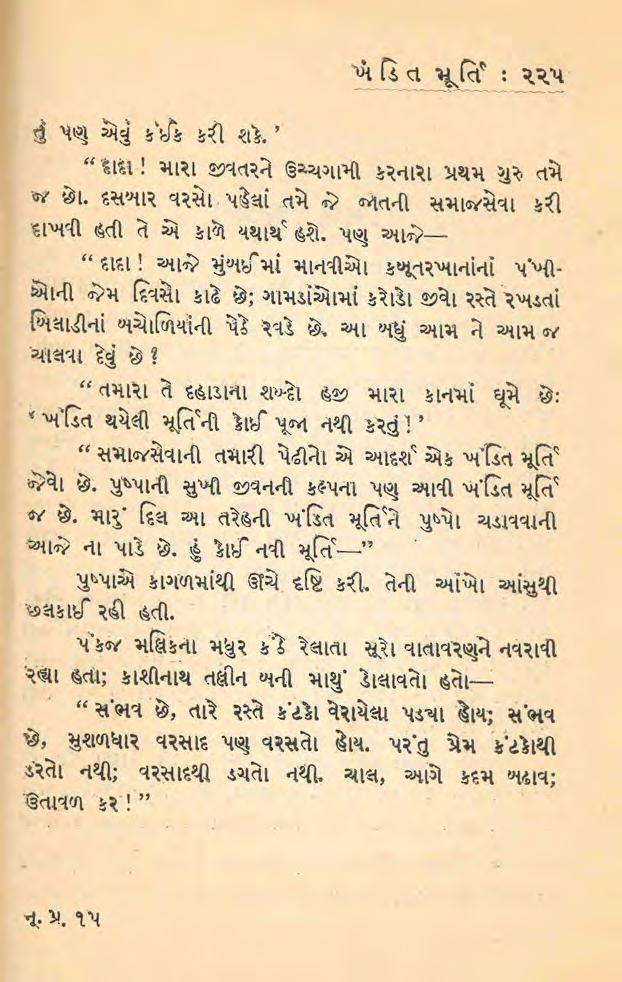 ખંડિત મૂર્તિ : ૨૨૫
તું પણ એવું કંઈક કરી શકે.’
“દાદા ! મારા જીવતરને ઉચ્ચગામી કરનારા પ્રથમ ગુરુ તમે
જ છો. દસબાર વરસો પહેલાં તમે જે જાતની સમાજસેવા કરી
દાખવી હતી તે એ કાળે યથાર્થ હશે. પણ આજે—
“દાદા ! આજે મુંબઈમાં માનવીઓ કબૂતરખાનાંનાં પંખી-
ઓની જેમ દિવસો કાઢે છે; ગામડાંઓમાં કરોડો જીવો રસ્તે રખડતાં
બિલાડીનાં બચોળિયાંની પેઠે રવડે છે. આ બધું આમ ને આમ જ
ચાલવા દેવું છે ?
“તમારા તે દહાડાના શબ્દો હજી મારા કાનમાં ઘૂમે છેઃ
‘ખંડિત થયેલી મૂર્તિની કોઈ પૂજા નથી કરતું !’
“સમાજસેવાની તમારી પેઢીનો એ આદર્શ એક ખંડિત મૂર્તિ
જેવો છે. પુષ્પાની સુખી જીવનની કલ્પના પણ આવી ખંડિત મૂર્તિ
જ છે. મારું દિલ આ તરેહની ખંડિત મૂર્તિને પુષ્પો ચડાવવાની
આજે ના પાડે છે. હું કોઈ નવી મૂર્તિ—”
પુષ્પાએ કાગળમાંથી ઊંચે દૃષ્ટિ કરી. તેની આંખો આંસુથી
છલકાઈ રહી હતી.
પંકજ મલ્લિકના મધુર કંઠે રેલાતા સૂરો વાતાવરણને નવરાવી
રહ્યા હતા; કાશીનાથ તલ્લીન બની માથું ડોલાવતો હતો—
“સંભવ છે, તારે રસ્તે કંટકો વેરાયેલા પડ્યા હોય; સંભવ
છે, મુશળધાર વરસાદ પણ વરસતો હોય. પરંતુ પ્રેમ કંટકોથી
ડરતો નથી; વરસાદથી ડગતો નથી. ચાલ, આગે કદમ બઢાવ;
ઉતાવળ કર !”
નૂ. પ્ર. ૧૫